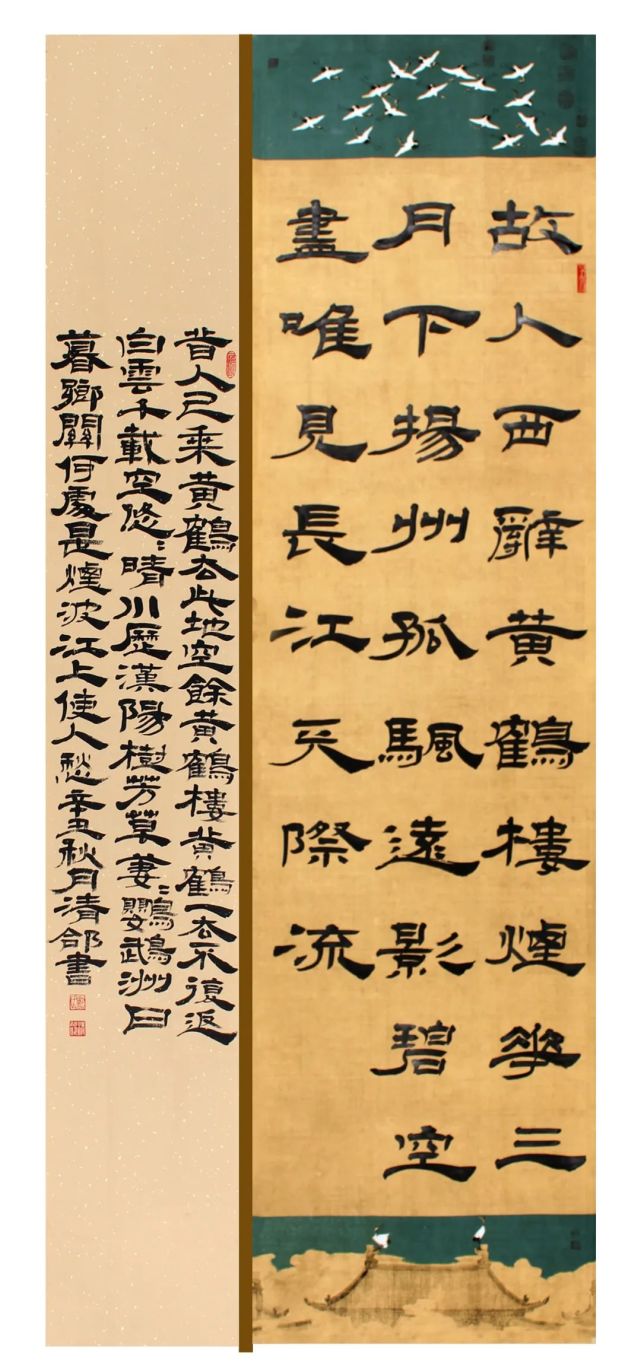 故人西辭黄鶴樓煙華三
月下揚州孤颿遠影碧空
盡唯見長江天際流
昔人已乘黄鶴去此地空餘黄鶴樓黄鶴一去不復返
白雲千載空悠〻晴川歷漢陽樹芳草萋〻鸚鵡洲日
暮鄉關何處是煙波江上使人愁辛丑秋月清郃書